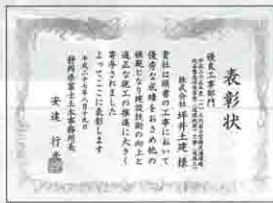 表彰状
優良工事部門
株式会社 坪井土建 様
貴社は頭書の工事において
優秀な成績をおさめ他の
模範となり建設技術の向上と
適正な施工の推進に大きく
寄与されました
よってここに表彰します
平成二十七年八月十九日
静岡県富士土木事務所長
安達 行